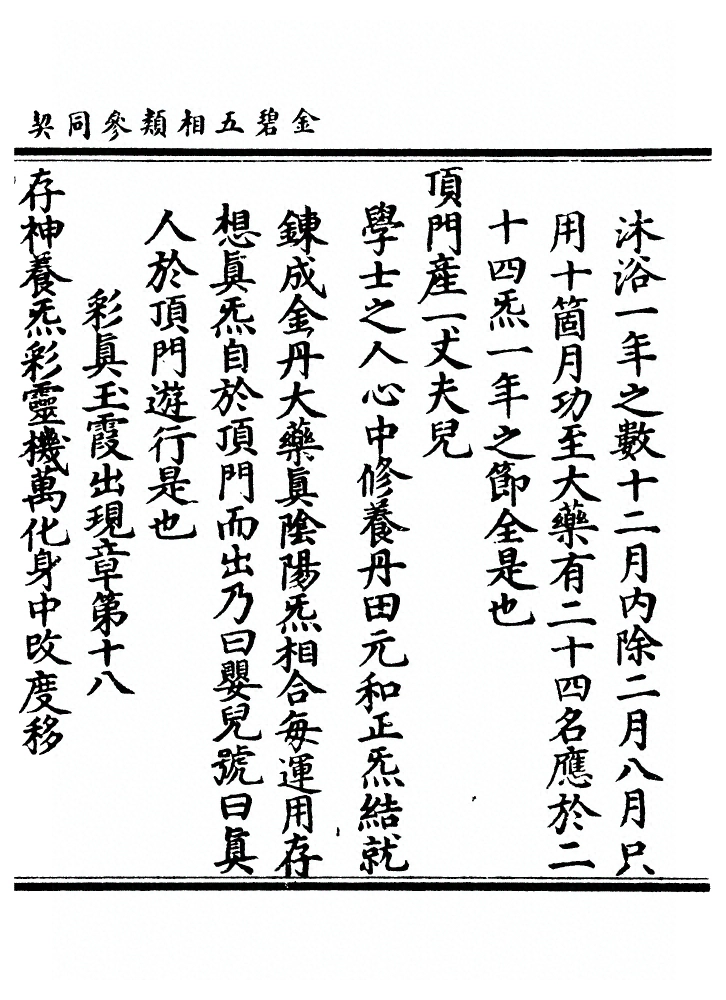 金碧五相類參同契
沐浴一年之數十二月內除二月八月只
用十箇月功至大藥有二十四名應於二
十四炁一年之節全是也
頂門產一丈夫兒
學士之人心中修養丹田元和正炁結就
鍊成金丹大藥眞陰陽炁相合每運用存
想眞炁自於頂門而出乃曰嬰兒號曰眞
人於頂門遊行是也
彩眞玉霞出現章第十八
存神養炁彩靈機萬化身中改度移